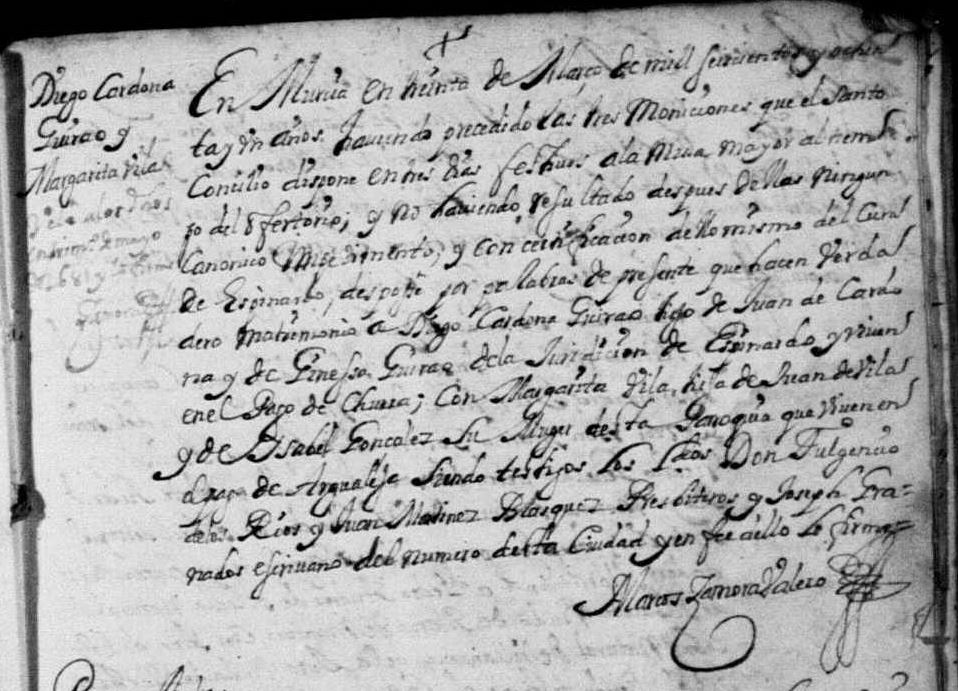 Diego Cardona
Guirao y
Margarita Vila
En Murcia en treinta de Março de mill seiscientos y ochen
ta y un años, haviendo precedido las tres Moniciones que el Santo
Concilio dispone en tres dias festivos a la Missa mayor al tiem
po del offertorio; y no haviendo resultado despues dellas ningun
Canonico impedimento, y con certificacion de lo mismo del Cura
de Espinardo, despossé por palabras de presente que hacen Verda
dero Matrimonio a Diego Cardona Guirao hijo de Juan de Cardo
na y de Ginessa Guirao de la Juridicion de Espinardo, y viven
en el Pago de Churra; Con Margarita Vila, hija de Juan de Vila
y de Ysabel Gonçalez Su Muger desta Parroquia que viven en
el pago de Arqualeja Siendo testigos Los Ldos Don Fulgencio
de los Rios y Juan Martinez Blasquez Presbiteros y Joseph Gra=
nados escrivano del numero desta Ciudad y en fee dello Lo firmé=
Marcos Zamora Valero